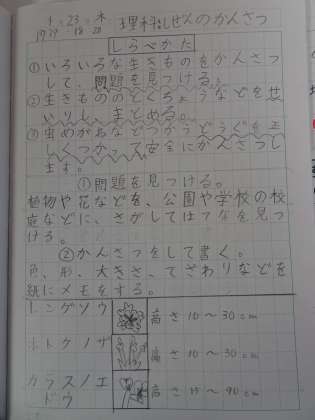 しらべかた
①いろいろな生きものをかんさつ
して、問題を見つける。
②生きもののとくちょうなどを せ
いりし、まとめる。
③虫めがねなどつかうどうぐを正
しくつかって安全にかんさつし
ます。
①問題を見つける。
植物や花などを、公園や学校の校
庭などに、さがしてはてなを見つ
ける。
②かんさつをして書く。
色、形、大きさ、てざわりなどを
紙にメモをする。
レンゲソウ 高さ10〜30cm
ホトケノザ 高さ10〜30cm
カラスノエ
ドウ 高さ 〜90cm